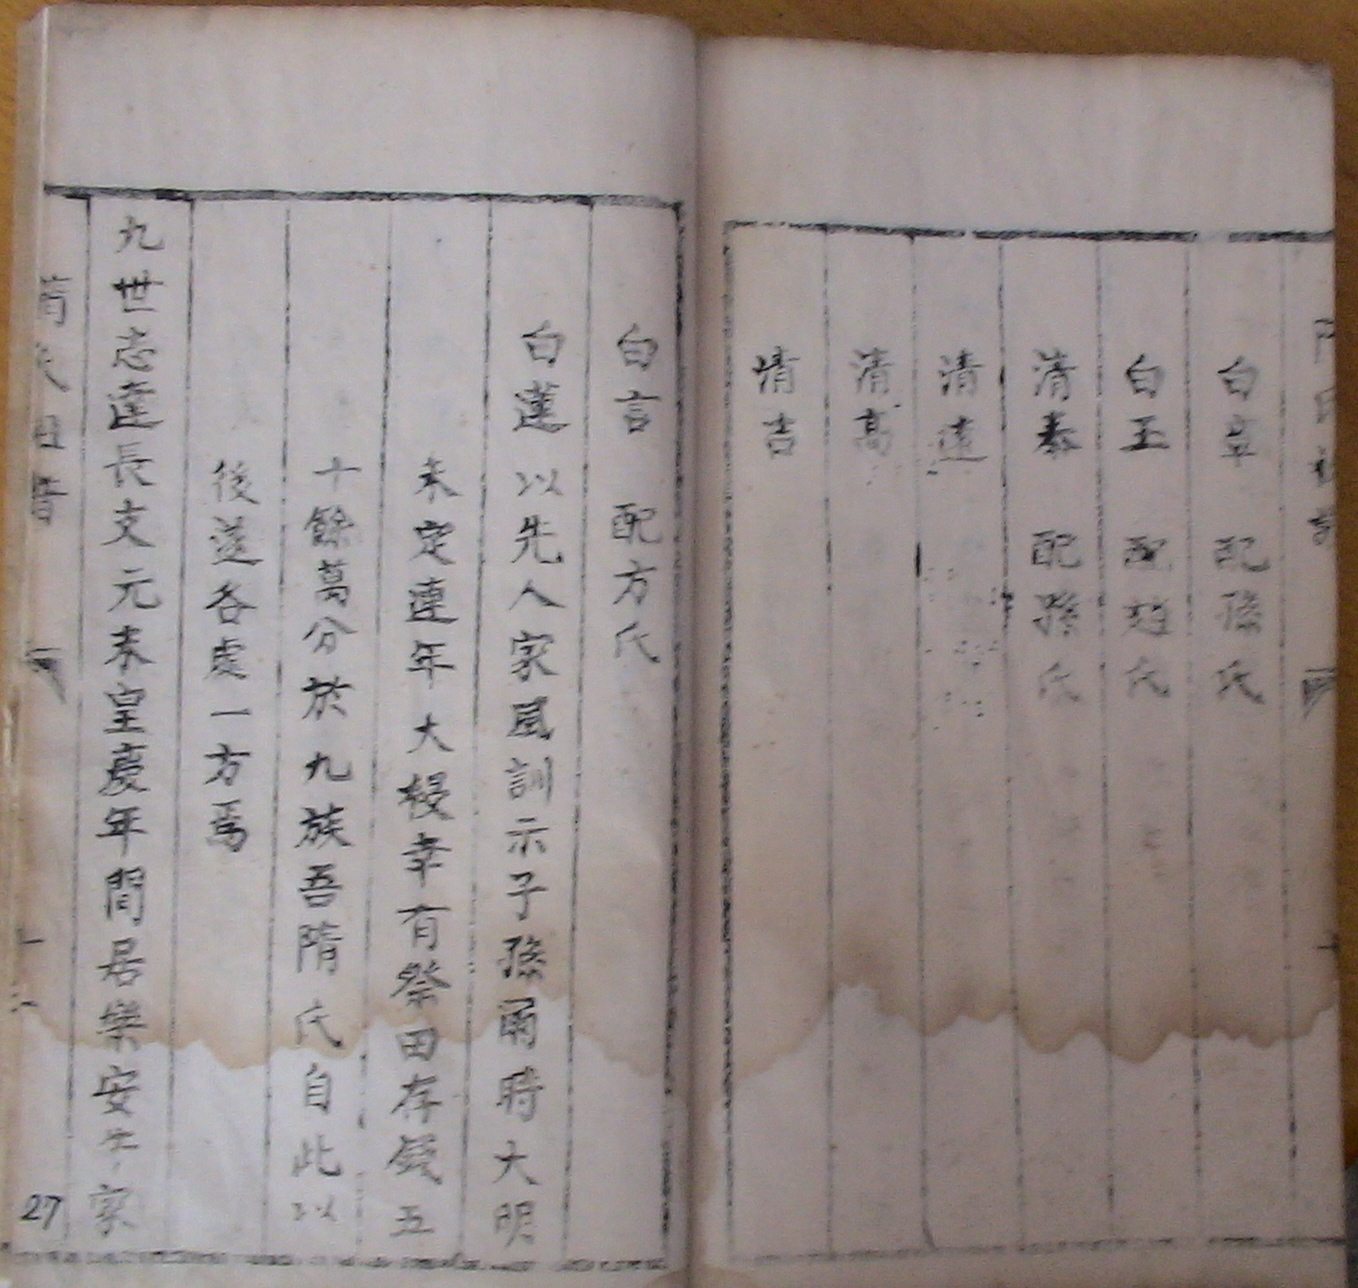 白卓 配孫氏
白玉 配趙氏
清泰 配孫氏
清遠
清高
清吉
白言 配方氏
白蓮 以先人家風訓示子孫爾時大明
未定連年大祲幸有祭田存錢五
十餘萬分於九族吾隋氏自此以
後遂各處一方焉
九世志達長支元末皇慶年間居樂安 家
27